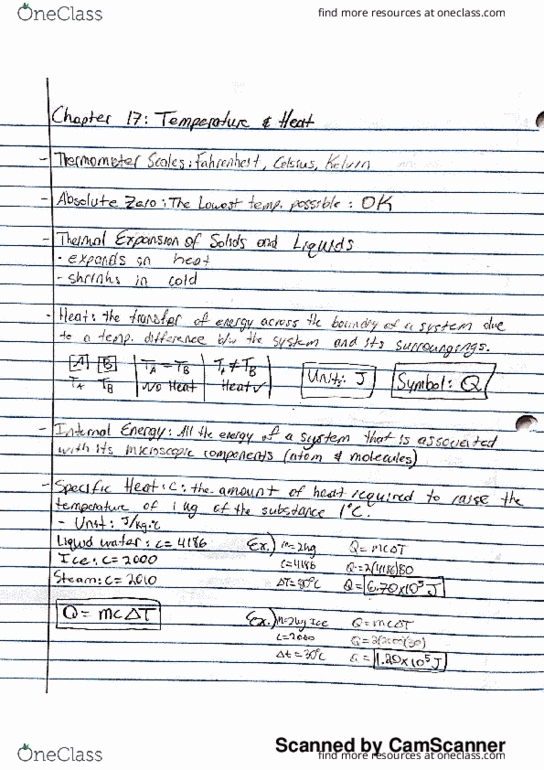 OneClass
find more resources at oneclass.com
Chapter 17: Temperature & Heat
- Thermometer Scales: Fahrenheit, Celsius, Kelvin
- Absolute Zero: The Lowest temp. possible: 0K
- Thermal Expansion of Solids and Liquids
- expands in heat
- shrinks in cold
- Heat: the transfer of energy across the boundry of a system due
to a temp. difference b/w the system and its surroundings.
A B | TA = TB | TA ≠ TB
TA TB | No Heat | Heat ✓
Units: J
Symbol: Q
- Internal Energy: All the energy of a system that is associated
with its microscopic components (atom & molecules)
- Specific Heat: C: the amount of heat required to raise the
temperature of 1 kg of the substance 1°C.
- Unit: J/kg·°C
Liquid water: C = 4186
Ice: C = 2000
Steam: C = 2010
Q = mcΔT
Ex.) m=2kg Q = mcΔT
C=4186 Q=2(4186)80
ΔT=80°C Q = 6.70x10⁵ J
Ex.) m=2kg Ice Q = mcΔT
C=2000 Q=2(2000)(30)
Δt = 30°C Q = 1.20x10⁵ J
OneClass
Scanned by CamScanner
find more resources at oneclass.com